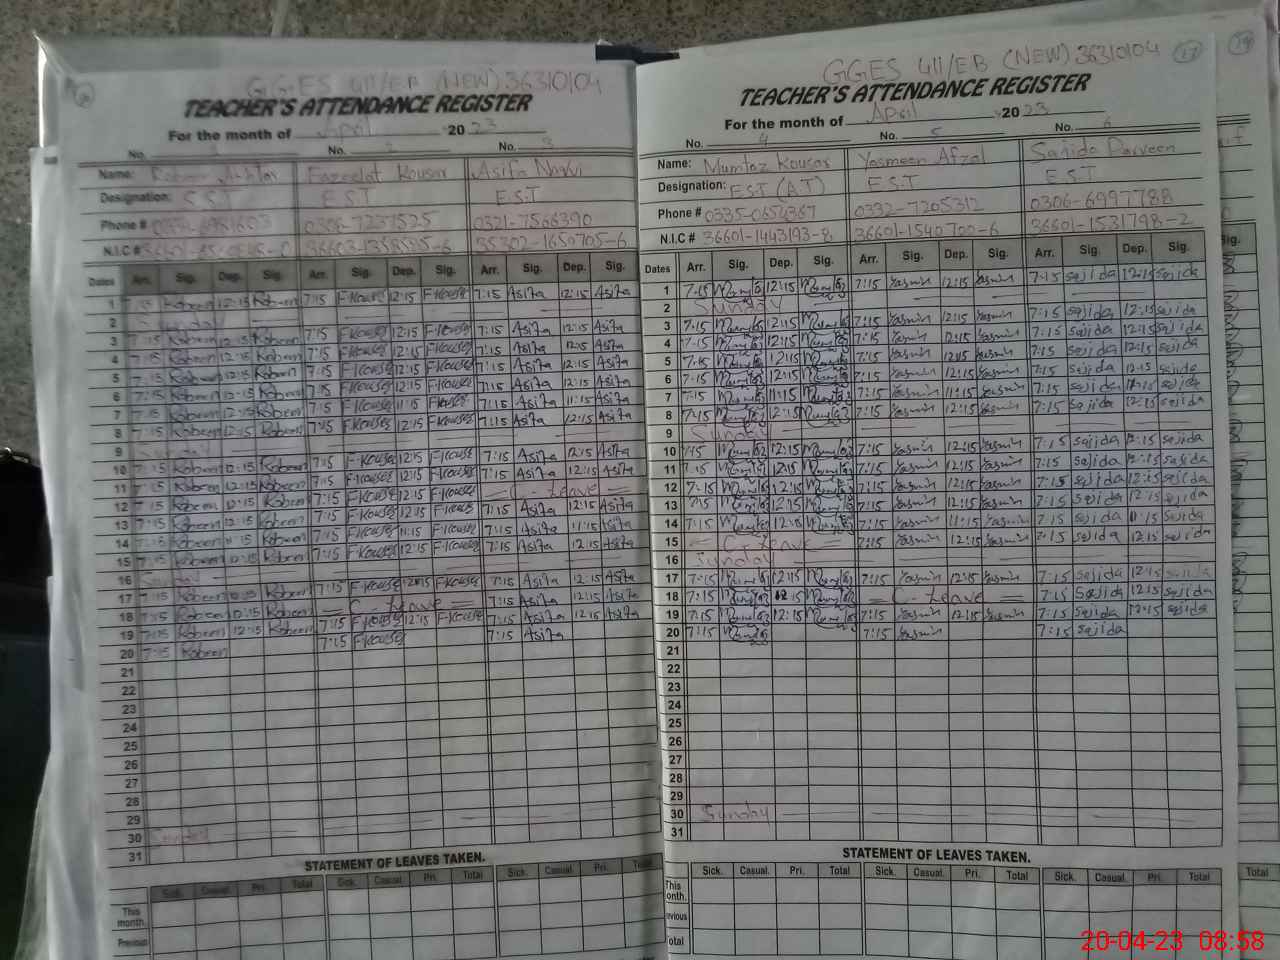 GGES 411/EB (NEW) 36310104
TEACHER'S ATTENDANCE REGISTER
For the month of April 2023
No. 1 No. 2 No. 3
Name: Fazeelat Kousar Asifa Naqvi
Designation: S.S.T E.S.T E.S.T
Phone # 0306-7237525 0321-7566390
N.I.C # 35302-1650705-6
Dates Arr. Sig. Dep. Sig. Arr. Sig. Dep. Sig. Arr. Sig. Dep. Sig.
1 7:15 Kobeen 12:15 Kobeen 7:15 F.Kousar 12:15 F.Kousar 7:15 Asifa 12:15 Asifa
2 Sunday
3 7:15 Kobeen 12:15 Kobeen 7:15 F.Kousar 12:15 F.Kousar 7:15 Asifa 12:15 Asifa
4 7:15 Kobeen 12:15 Kobeen 7:15 F.Kousar 12:15 F.Kousar 7:15 Asifa 12:15 Asifa
5 7:15 Kobeen 12:15 Kobeen 7:15 F.Kousar 12:15 F.Kousar 7:15 Asifa 12:15 Asifa
6 7:15 Kobeen 12:15 Kobeen 7:15 F.Kousar 12:15 F.Kousar 7:15 Asifa 12:15 Asifa
7 7:15 Kobeen Kobeen 7:15 F.Kousar 11:15 F.Kousar 7:15 Asifa 11:15 Asifa
8 7:15 Kobeen 12:15 Kobeen 7:15 F.Kousar 12:15 F.Kousar 7:15 Asifa 12:15 Asifa
9 Sunday
10 7:15 Kobeen 12:15 Kobeen 7:15 F.Kousar 12:15 F.Kousar 7:15 Asifa 12:15 Asifa
11 7:15 Kobeen 12:15 Kobeen 7:15 F.Kousar 12:15 F.Kousar 7:15 Asifa 12:15 Asifa
12 7:15 Kobeen 12:15 Kobeen 7:15 F.Kousar 12:15 F.Kousar C-Leave
13 7:15 Kobeen 12:15 Kobeen 7:15 F.Kousar 12:15 F.Kousar 7:15 Asifa 12:15 Asifa
14 7:15 Kobeen Kobeen 7:15 F.Kousar F.Kousar 7:15 Asifa 11:15 Asifa
15 7:15 Kobeen 12:15 Kobeen 7:15 F.Kousar 12:15 F.Kousar 7:15 Asifa 12:15 Asifa
16 Sunday
17 7:15 Kobeen Kobeen 7:15 F.Kousar 12:15 F.Kousar 7:15 Asifa 12:15 Asifa
18 7:15 Kobeen 12:15 Kobeen C-Leave 7:15 Asifa 12:15 Asifa
19 7:15 Kobeen 12:15 Kobeen 7:15 F.Kousar 12:15 F.Kousar 7:15 Asifa 12:15 Asifa
20 7:15 Kobeen 7:15 F.Kousar 7:15 Asifa
21
22
23
24
25
26
27
28
29
30 Sunday
31
STATEMENT OF LEAVES TAKEN.
Sick. Casual. Pri. Total Sick. Casual. Pri. Total Sick. Casual. Pri. Total
This month.
Previous
GGES 411/EB (NEW) 36310104 17
TEACHER'S ATTENDANCE REGISTER
For the month of April 2023
No. 4 No. 5 No. 6
Name: Mumtaz Kousar Yasmeen Afzal Sajida Parveen
Designation: E.S.T (A.T) E.S.T E.S.T
Phone # 0335-0654367 0332-7205312 0306-6997788
N.I.C # 36601-1443193-8 36601-1540700-6 36601-1531798-2
Dates Arr. Sig. Dep. Sig. Arr. Sig. Dep. Sig. Arr. Sig. Dep. Sig.
1 7:15 Mumtaz 12:15 Mumtaz 7:15 Yasmin 12:15 Yasmin 7:15 sajida 12:15 sajida
2 Sunday
3 7:15 Mumtaz 12:15 Mumtaz 7:15 Yasmin 12:15 Yasmin 7:15 sajida 12:15 sajida
4 7:15 Mumtaz 12:15 Mumtaz 7:15 Yasmin 12:15 Yasmin 7:15 sajida 12:15 sajida
5 7:15 Mumtaz 12:15 Mumtaz 7:15 Yasmin 12:15 Yasmin 7:15 sajida 12:15 sajida
6 7:15 Mumtaz 12:15 Mumtaz 7:15 Yasmin 12:15 Yasmin 7:15 sajida 12:15 sajida
7 7:15 Mumtaz 11:15 Mumtaz 7:15 Yasmin 11:15 Yasmin 7:15 sajida sajida
8 7:15 Mumtaz 12:15 Mumtaz 7:15 Yasmin 12:15 Yasmin 7:15 sajida 12:15 sajida
9 Sunday
10 7:15 Mumtaz 12:15 Mumtaz 7:15 Yasmin 12:15 Yasmin 7:15 sajida 12:15 sajida
11 7:15 Mumtaz 12:15 Mumtaz 7:15 Yasmin 12:15 Yasmin 7:15 sajida 12:15 sajida
12 7:15 Mumtaz 12:15 Mumtaz 7:15 Yasmin 12:15 Yasmin 7:15 sajida 12:15 sajida
13 7:15 Mumtaz 12:15 Mumtaz 7:15 Yasmin 12:15 Yasmin 7:15 sajida 12:15 sajida
14 7:15 Mumtaz 12:15 Mumtaz 7:15 Yasmin 11:15 Yasmin 7:15 sajida 11:15 sajida
15 C-Leave 7:15 Yasmin 12:15 Yasmin 7:15 sajida 12:15 sajida
16 Sunday
17 7:15 Mumtaz 12:15 Mumtaz 7:15 Yasmin 12:15 Yasmin 7:15 sajida 12:15 sajida
18 7:15 Mumtaz 12:15 Mumtaz C-Leave 7:15 sajida 12:15 sajida
19 7:15 Mumtaz 12:15 Mumtaz 7:15 Yasmin 12:15 Yasmin 7:15 sajida 12:15 sajida
20 7:15 Mumtaz 7:15 Yasmin 7:15 sajida
21
22
23
24
25
26
27
28
29
30 Sunday
31
STATEMENT OF LEAVES TAKEN.
Sick. Casual. Pri. Total Sick. Casual. Pri. Total Sick. Casual. Pri. Total
This
onth.
evious
Total
19
Sig.
Total
20-04-23 08:58